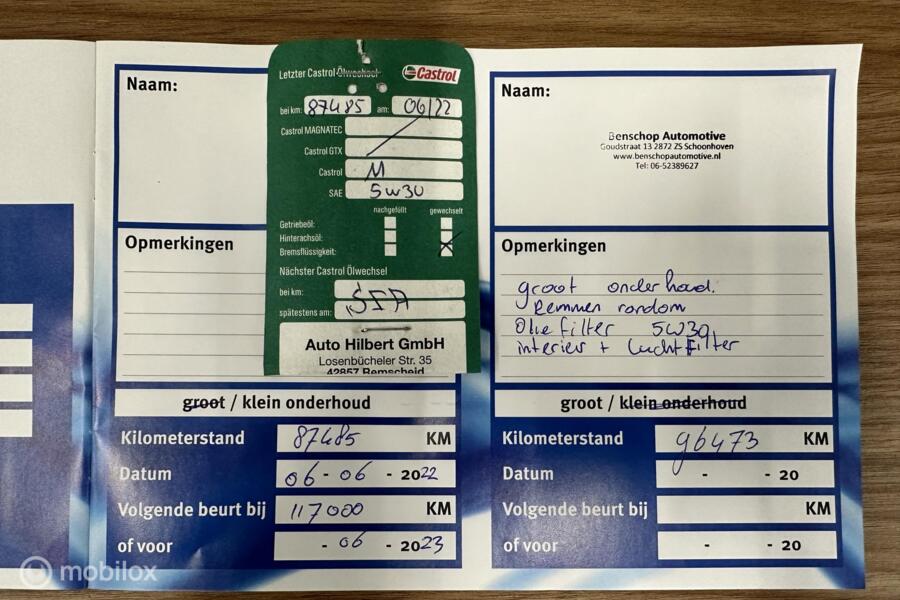 Naam:
Letzter Castrol Ölwechsel
Castrol
bei km: 87485 am: 06/22
Castrol MAGNATEC
Castrol GTX
Castrol M
SAE 5W30
nachgefüllt gewechselt
Getriebeöl:
Hinterachsöl:
Bremsflüssigkeit: X
Nächster Castrol Ölwechsel
bei km:
spätestens am:
Auto Hilbert GmbH
Losenbücheler Str. 35
42857 Remscheid
Opmerkingen
groot / klein onderhoud
Kilometerstand 87485 KM
Datum 06 - 06 - 2022
Volgende beurt bij 117000 KM
of voor - 06 - 2023
Naam:
Benschop Automotive
Goudstraat 13 2872 ZS Schoonhoven
www.benschopautomotive.nl
Tel: 06-52389627
Opmerkingen
groot onderhoud.
Remmen rondom
Olie filter 5W30,
interieur + luchtfilter
groot / klein onderhoud
Kilometerstand 96473 KM
Datum - - 20
Volgende beurt bij KM
of voor - - 20
mobilox